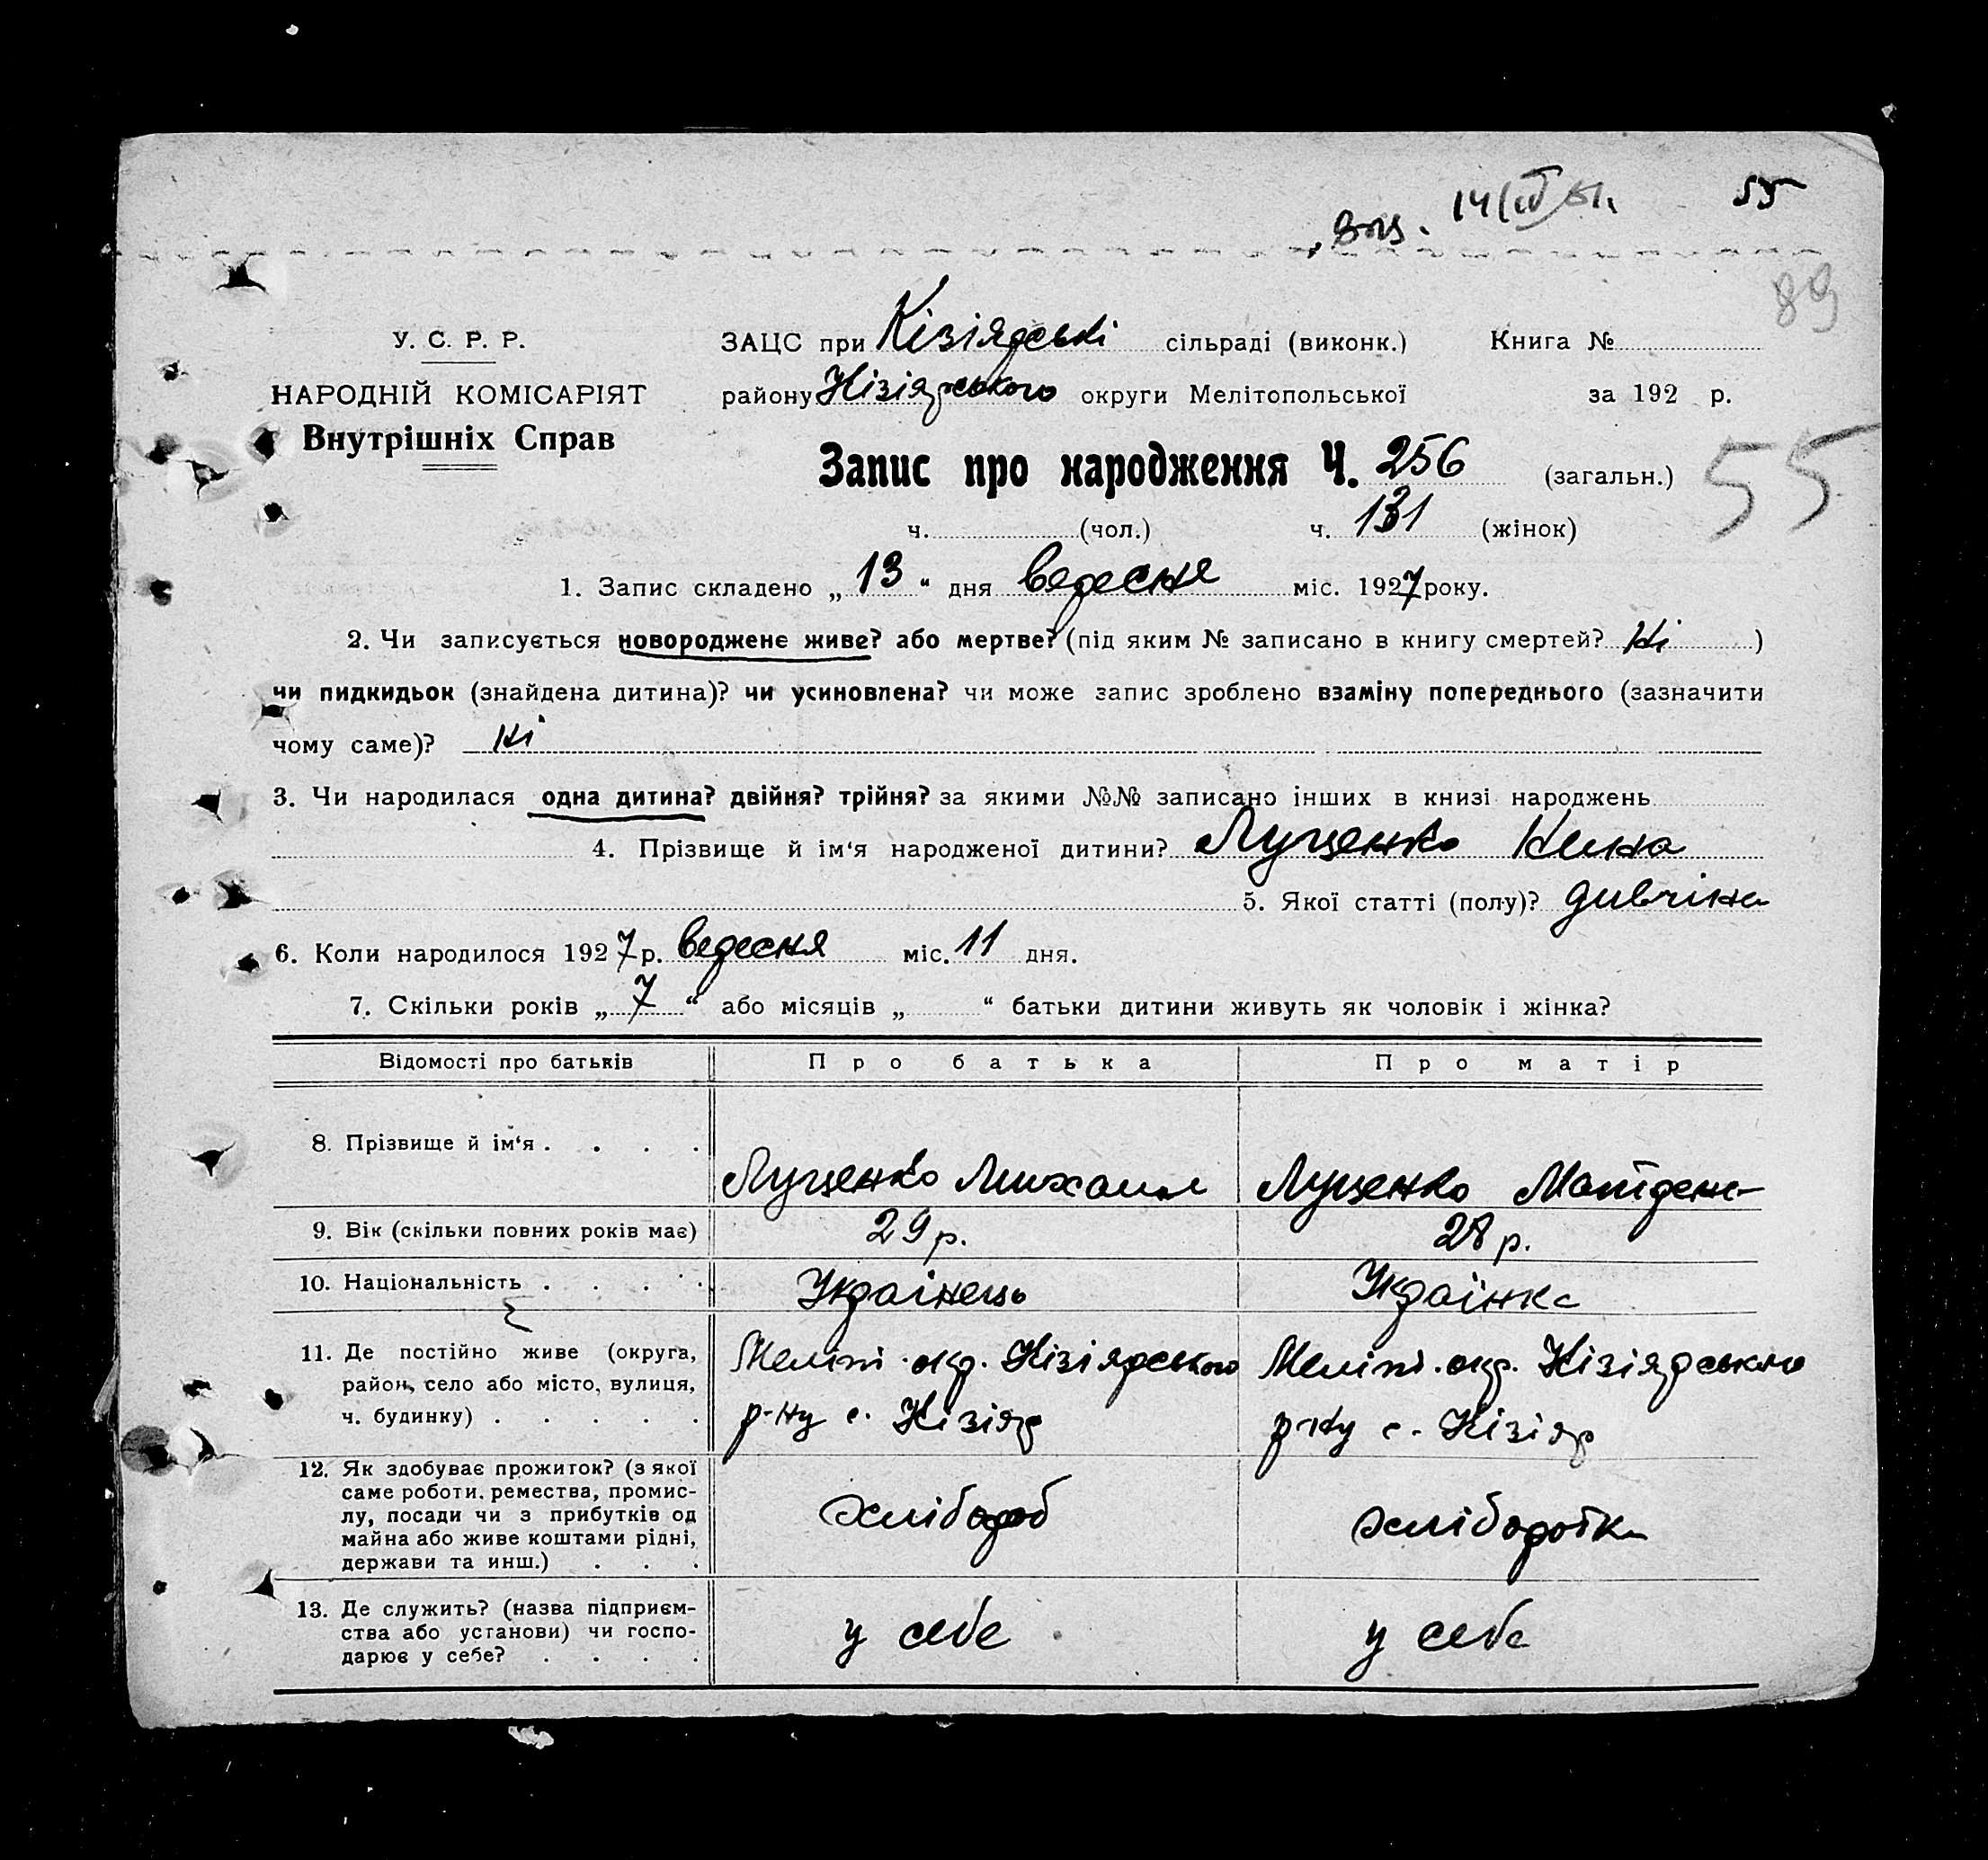 14/IV 51. 55
89
У. С. Р. Р.
НАРОДНІЙ КОМІСАРІЯТ
Внутрішніх Справ
ЗАЦС при Кізіярські сільраді (виконк.) Книга №
району Кізіярського округи Мелітопольської за 192 р.
Запис про народження Ч. 256 (загальн.)
55
ч. (чол.) ч. 131 (жінок)
1. Запис складено „ 13 “ дня вересня міс. 1927 року.
2. Чи записується новороджене живе? або мертве? (під яким № записано в книгу смертей? Ні )
чи пидкидьок (знайдена дитина)? чи усиновлена? чи може запис зроблено взаміну попереднього (зазначити
чому саме)? Ні
3. Чи народилася одна дитина? двійня? трійня? за якими №№ записано інших в книзі народжень
4. Прізвище й ім‘я народженої дитини? Луценко Нина
5. Якої статті (полу)? дивчіна
6. Коли народилося 1927 р. вересня міс. 11 дня.
7. Скільки років „ 7 “ або місяців „ “ батьки дитини живуть як чоловік і жінка?
Відомості про батьків Про батька Про матір
8. Прізвище й ім‘я . . . . Луценко Михаил Луценко
9. Вік (скільки повних років має) 29 р. 28 р.
10. Національність . . . . Українець Українка
11. Де постійно живе (округа, Меліт. окр. Кізіярського Меліт. окр. Кізіярського
район, село або місто, вулиця, р-ну с. Кізіяр р-ну с. Кізіяр
ч. будинку) . . . . .
12. Як здобуває прожиток? (з якої
саме роботи, ремества, промис-
лу, посади чи з прибутків од хлібороб хліборобка
майна або живе коштами рідні,
держави та инш.) . . .
13. Де служить? (назва підприєм-
ства або установи) чи госпо- у себе у себе
дарює у себе? . . . .